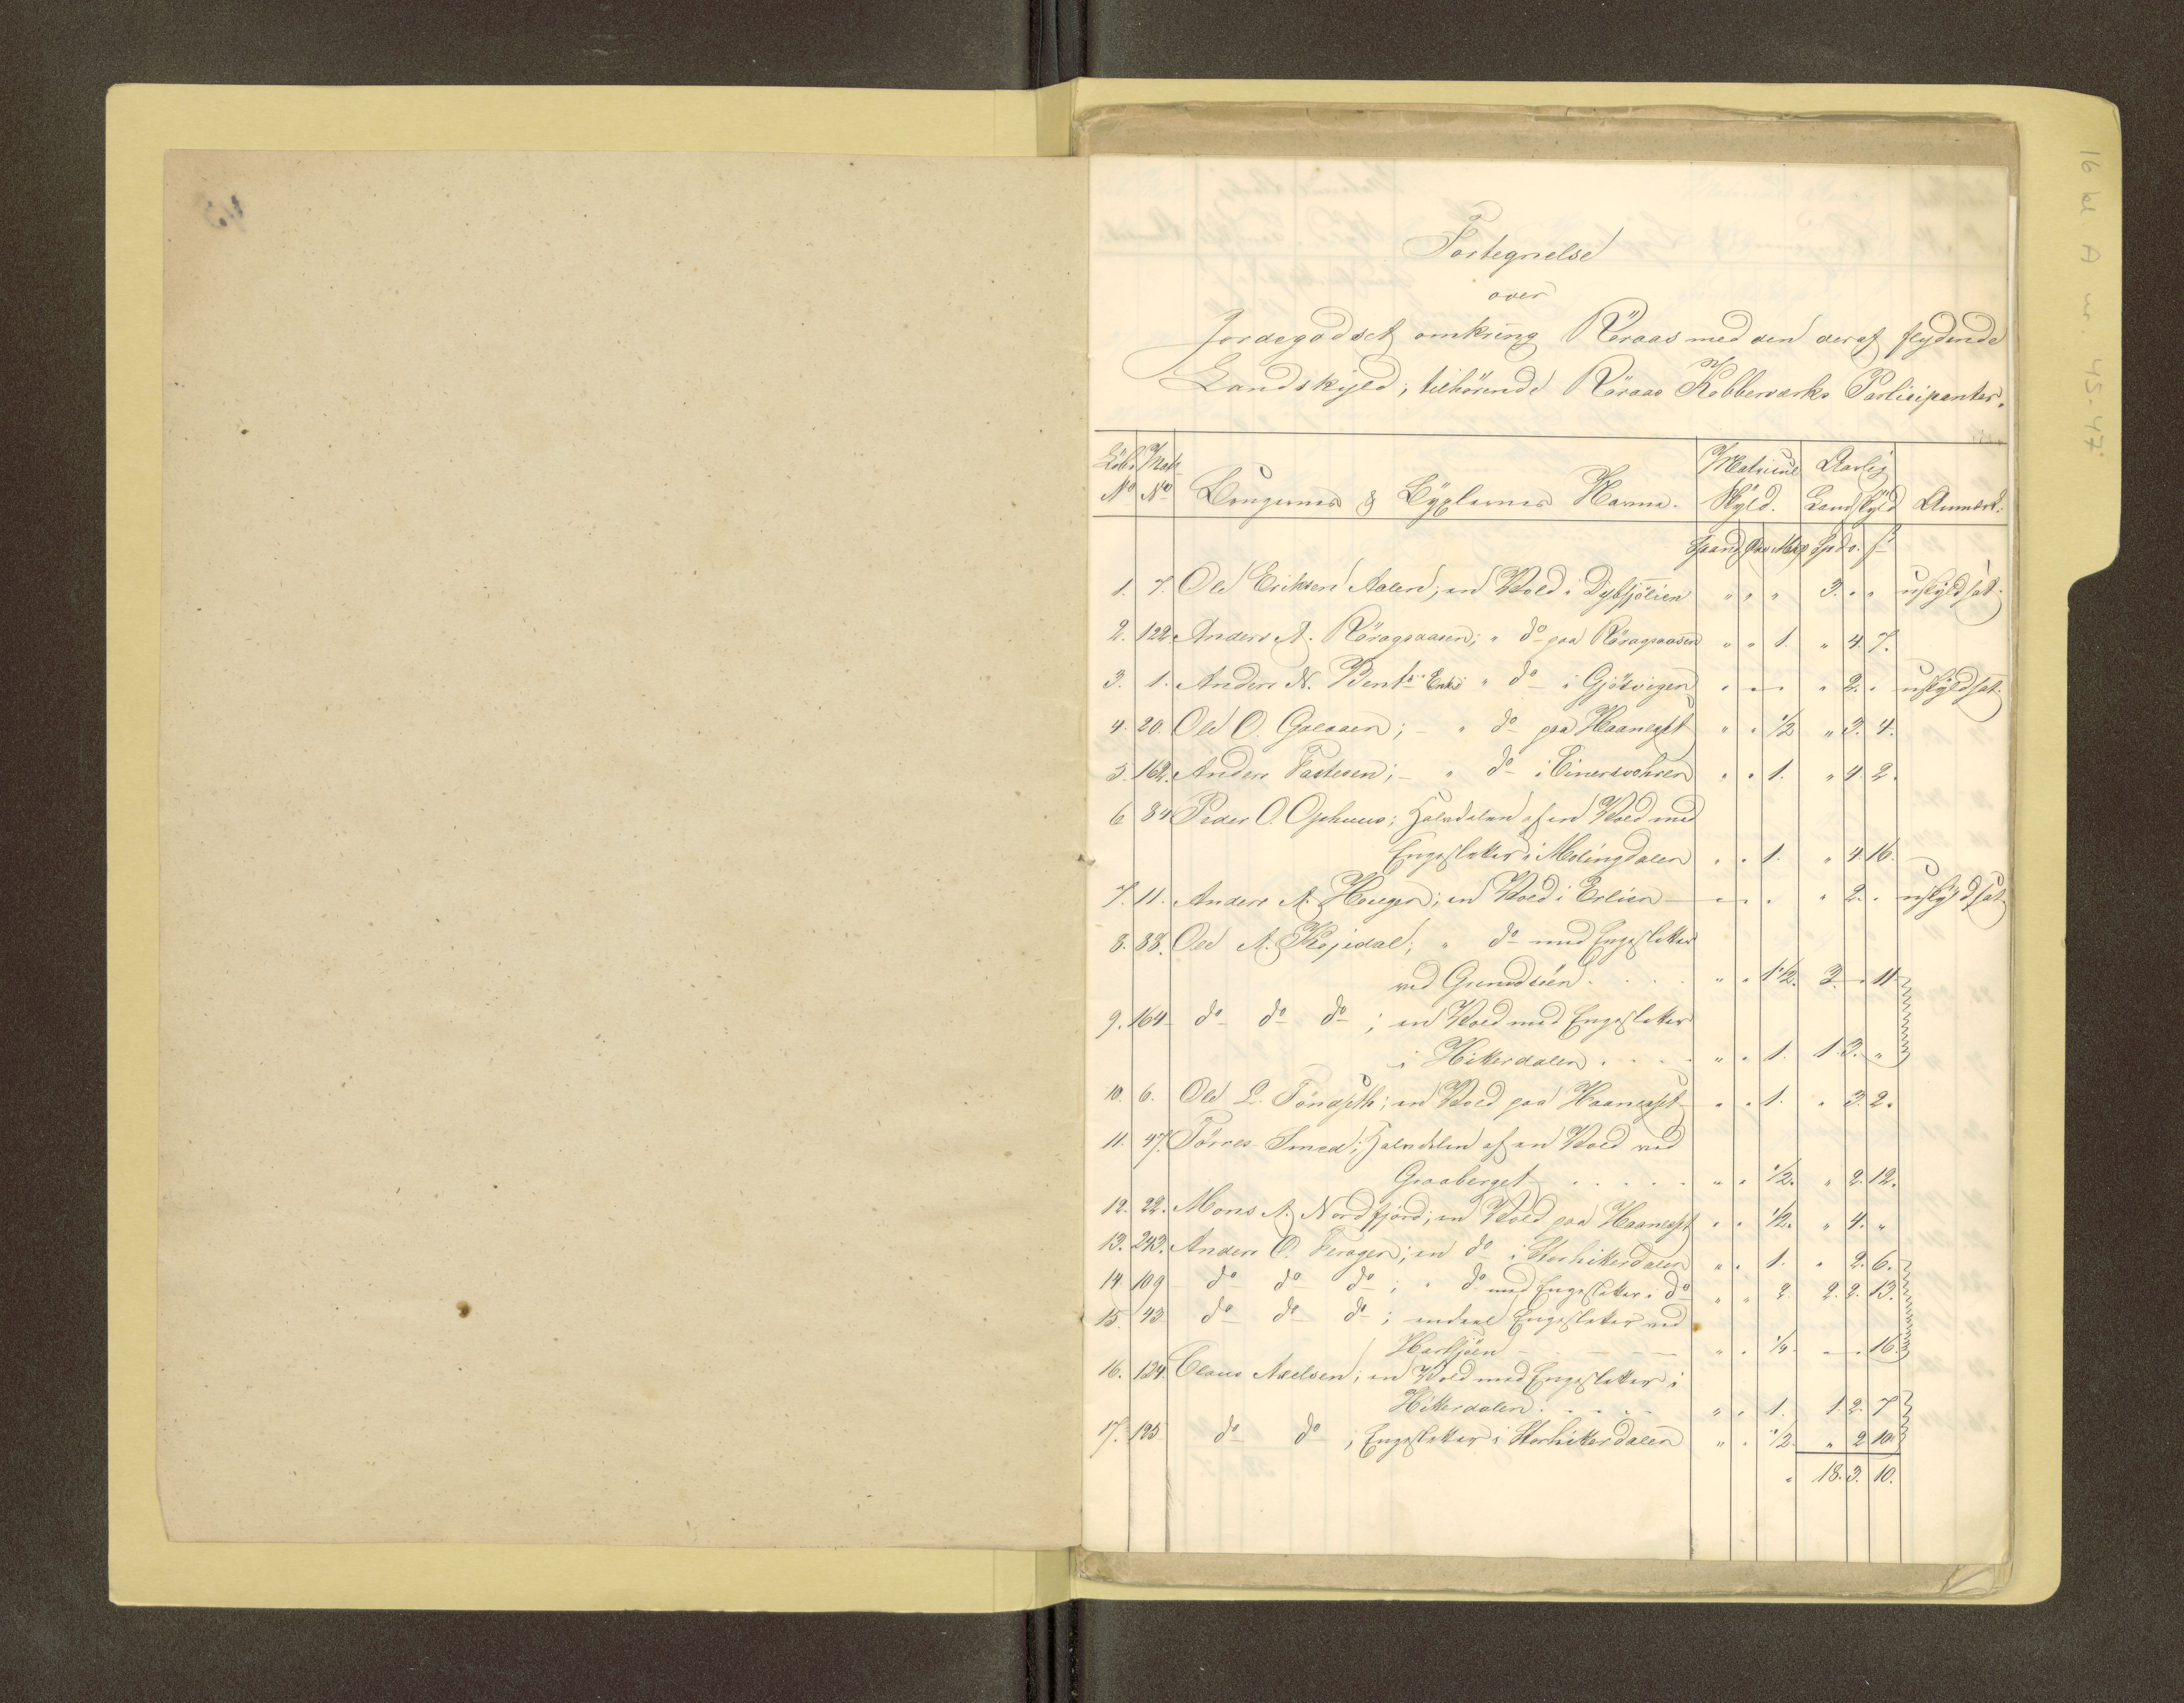 Fortegnelse
over
Jordegodset omkring Röraas med den deraf flydende
Landskyld; tilhörende Röraas Kobberværks Participanter.
Löb. Matr. Matricul Aarlig
No No Brugernes & Byxlernes Navne. Skyld. Landskyld Anmærk.
Spand Øre Mrk Spdr. ß
1. 7. Ole Eriksen Aalen; en Vold i Dybsjölien " " " 3. " " uskyldsat.
2. 122. Anders A. Röragsaasen; " do paa Röragsaasen " " 1. " 4. 7.
3. 1. Anders N. Bents Enke " do i Gjösvigen " " " " 2. " uskyldsat.
4. 20. Ole O. Galaaen; " do paa Haaneset " " 1/2 " 3. 4.
5. 162. Anders Fastesen; " do i Einersvohren " " 1. " 4. 2.
6 84 Peder O. Ophuus; Halvdelen af en Vold med
Engesletter i Molingdalen " " 1. " 4. 16.
7. 11. Anders A. Hougen; en Vold i Erlien " " " " 2. " uskyldsat
8. 88. Ole A. Kojedal; " do med Engesletter
ved Grundsöen " " 1 1/2. 3. " 11
9. 164 do do do; en Vold med Engesletter
i Hitterdalen " " 1. 1. 3. "
10. 6. Ole L. Tönseth; en Vold paa Haaneset " " 1. " 3. 2.
11. 47. Törres Smed; Halvdelen af en Vold ved
Graaberget " " 1/2. " 2. 12.
12. 22. Mons A. Nordfjord; en Vold paa Haaneset " " 1/2. " 4. "
13. 243. Anders O. Feragen; en do i Storhitterdalen " " 1. " 2. 6.
14. 109 do do do; " do med Engesletter i do " " 2. 2. 2. 13.
15. 43 do do do; endeel Engesletter ved
Harsjöen " " 1/4. " " 16.
16. 124. Claus Axelsen; en Vold med Engesletter i
Hitterdalen " " 1. 1. 2. 7
17. 125 do do; Engesletter i Storhitterdalen " " 1/2. " 2 10.
" 18. 3. 10.
16 kl A nr. 45-47